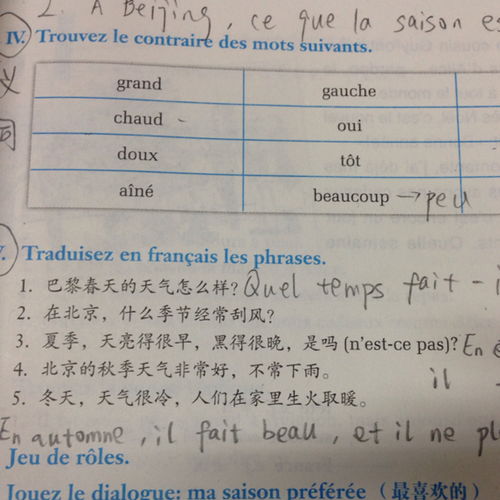 2. A Beijing, ce que la saison
IV. Trouvez le contraire des mots suivants.
义
grand gauche
chaud oui
同
doux tôt
aîné beaucoup →peu
V. Traduisez en français les phrases.
1. 巴黎春天的天气怎么样? Quel temps fait-
2. 在北京，什么季节经常刮风?
3. 夏季，天亮得很早，黑得很晚，是吗 (n'est-ce pas)? En
4. 北京的秋季天气非常好，不常下雨。 il
5. 冬天，天气很冷，人们在家里生火取暖。
En automne, il fait beau, et il ne
Jeu de rôles.
Jouez le dialogue: ma saison préférée （最喜欢的）